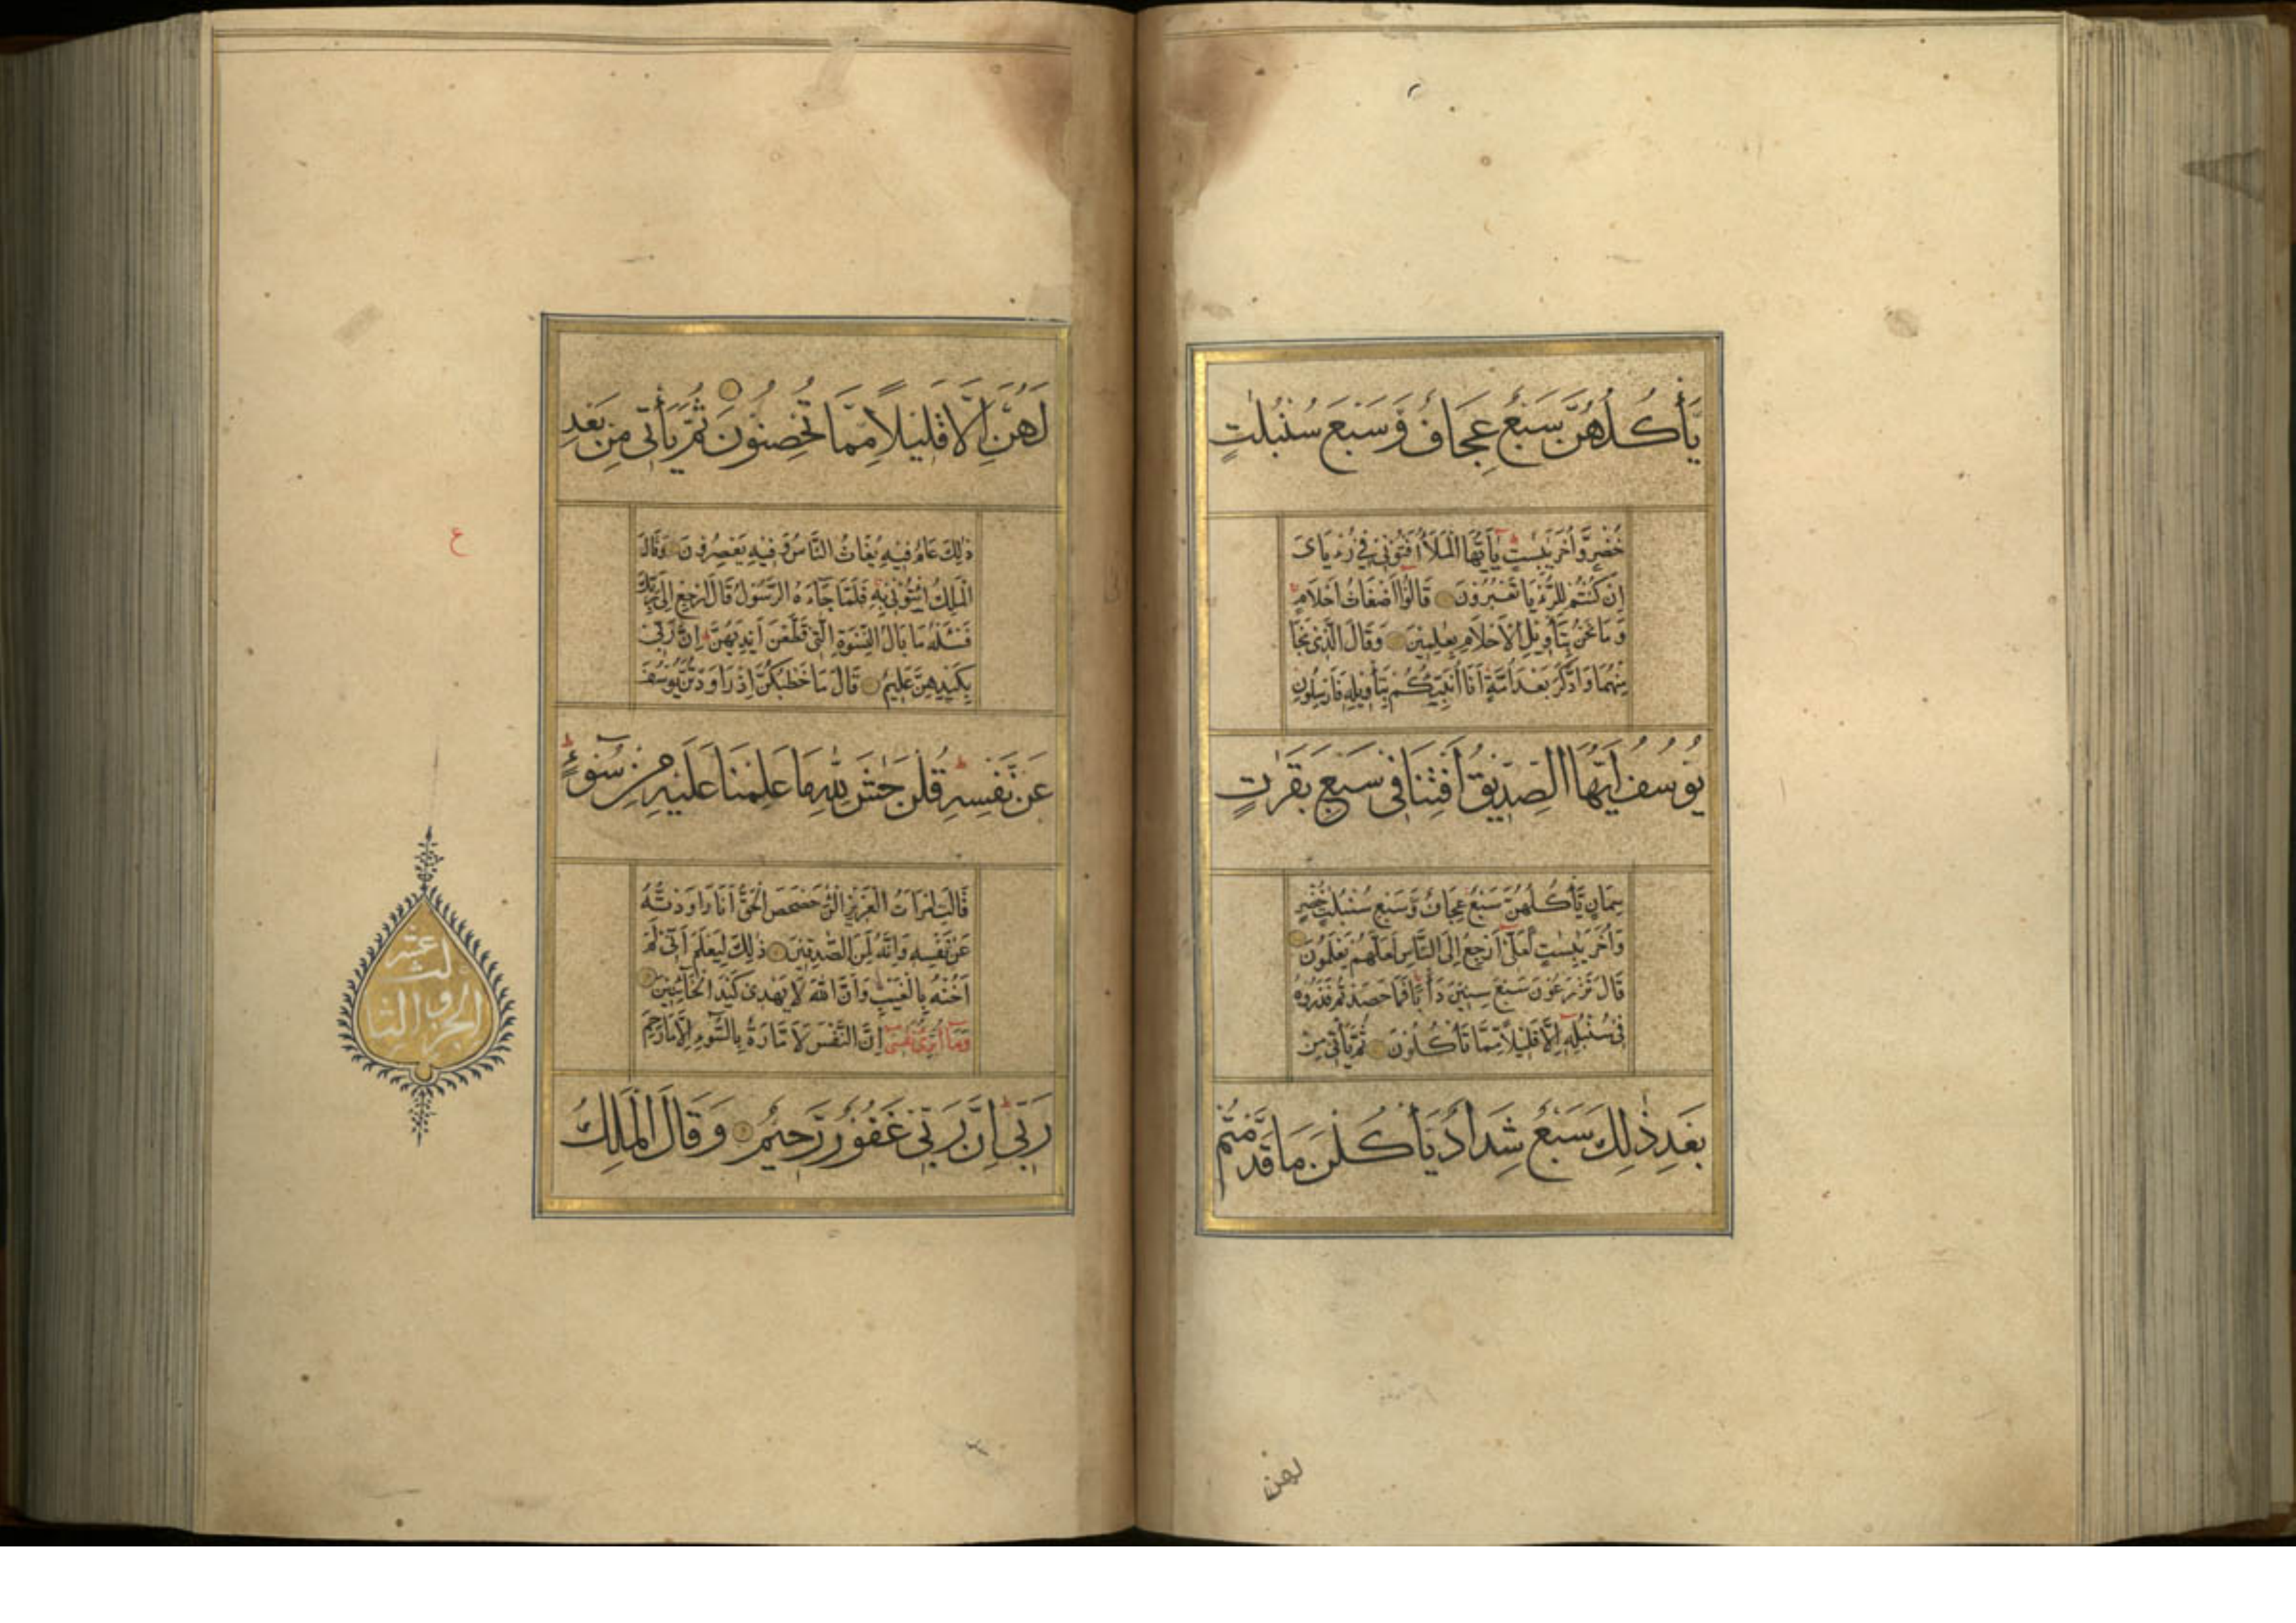 يَأْكُلُهُنَّ سَبْعٌ عِجَافٌ وَّسَبْعَ سُنْبُلٰتٍ
خُضْرٍ وَّأُخَرَ يٰبِسٰتٍ ط يٰٓأَيُّهَا الْمَلَأُ أَفْتُوْنِيْ فِيْ رُءْيَايَ
اِنْ كُنْتُمْ لِلرُّءْيَا تَعْبُرُوْنَ قَالُوْٓا اَضْغَاثُ اَحْلَامٍ
وَمَا نَحْنُ بِتَأْوِيْلِ الْاَحْلَامِ بِعٰلِمِيْنَ وَقَالَ الَّذِيْ نَجَا
مِنْهُمَا وَادَّكَرَ بَعْدَ اُمَّةٍ اَنَا اُنَبِّئُكُمْ بِتَأْوِيْلِهٖ فَاَرْسِلُوْنِ
يُوْسُفُ اَيُّهَا الصِّدِّيْقُ اَفْتِنَا فِيْ سَبْعِ بَقَرٰتٍ
سِمَانٍ يَّأْكُلُهُنَّ سَبْعٌ عِجَافٌ وَّسَبْعِ سُنْبُلٰتٍ خُضْرٍ
وَّاُخَرَ يٰبِسٰتٍ لَعَلِّيْٓ اَرْجِعُ اِلَى النَّاسِ لَعَلَّهُمْ يَعْلَمُوْنَ
قَالَ تَزْرَعُوْنَ سَبْعَ سِنِيْنَ دَأَبًا فَمَا حَصَدْتُمْ فَذَرُوْهُ
فِيْ سُنْبُلِهٖٓ اِلَّا قَلِيْلًا مِّمَّا تَأْكُلُوْنَ ثُمَّ يَأْتِيْ مِنْ
بَعْدِ ذٰلِكَ سَبْعٌ شِدَادٌ يَّأْكُلْنَ مَا قَدَّمْتُمْ
لهن
لَهُنَّ اِلَّا قَلِيْلًا مِّمَّا تُحْصِنُوْنَ ثُمَّ يَأْتِيْ مِنْ بَعْدِ
ذٰلِكَ عَامٌ فِيْهِ يُغَاثُ النَّاسُ وَفِيْهِ يَعْصِرُوْنَ وَقَالَ
ع
الْمَلِكُ ائْتُوْنِيْ بِهٖ فَلَمَّا جَآءَهُ الرَّسُوْلُ قَالَ ارْجِعْ اِلٰى رَبِّكَ
فَسْئَلْهُ مَا بَالُ النِّسْوَةِ الّٰتِيْ قَطَّعْنَ اَيْدِيَهُنَّ ط اِنَّ رَبِّيْ
بِكَيْدِهِنَّ عَلِيْمٌ قَالَ مَا خَطْبُكُنَّ اِذْ رَاوَدْتُّنَّ يُوْسُفَ
عَنْ نَّفْسِهٖ ط قُلْنَ حٰشَ لِلّٰهِ مَا عَلِمْنَا عَلَيْهِ مِنْ سُوْٓءٍ ط
قَالَتِ امْرَاَتُ الْعَزِيْزِ الْـٰٔنَ حَصْحَصَ الْحَقُّ اَنَا رَاوَدْتُّهٗ
عَنْ نَّفْسِهٖ وَاِنَّهٗ لَمِنَ الصّٰدِقِيْنَ ذٰلِكَ لِيَعْلَمَ اَنِّيْ لَمْ
اَخُنْهُ بِالْغَيْبِ وَاَنَّ اللّٰهَ لَا يَهْدِيْ كَيْدَ الْخَآئِنِيْنَ
وَمَآ اُبَرِّئُ نَفْسِيْ اِنَّ النَّفْسَ لَاَمَّارَةٌ بِالسُّوْٓءِ اِلَّا مَا رَحِمَ
رَبِّيْ اِنَّ رَبِّيْ غَفُوْرٌ رَّحِيْمٌ وَقَالَ الْمَلِكُ
الجزو الثالث عشر